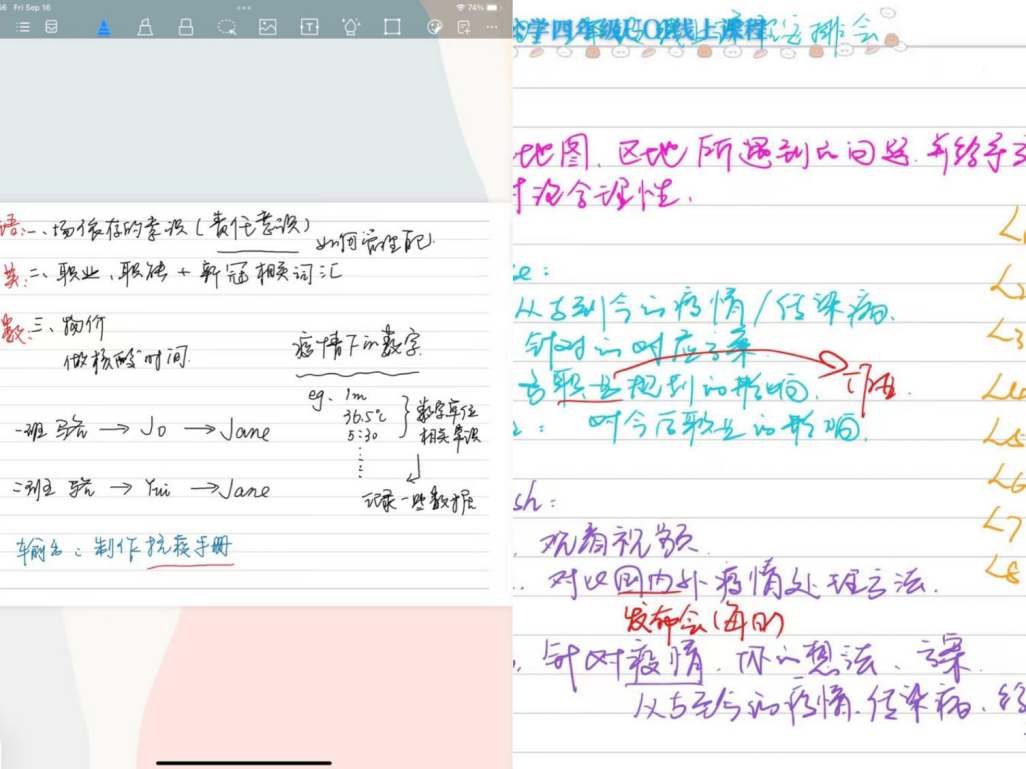 Fri Sep 16
74%
语:一、场依存的意识(责任意识)
如何管理配
英:二、职业、职能+新冠相关词汇
数:三、物价
做核酸时间
疫情下的数字
eg. 1m
36.5℃
5:30
数字单位
相关常识
记录一些数据
一班 骆 → Jo → Jane
二班 骆 → Yui → Jane
输出:制作抗疫手册
学四年级 线上课程
排会
地图、区地所遇到的问题,并给予
讨论合理性.
从古到今的疫情/传染病.
针对的对应方案
职业规划的影响.
对今后职业的影响.
sh:
观看视频
对比国内外疫情处理方法.
发布会(每日)
针对疫情,你的想法、方案.
从古至今的疫情、传染病、给
L2
L3
L4
L5
L6
L7
L8